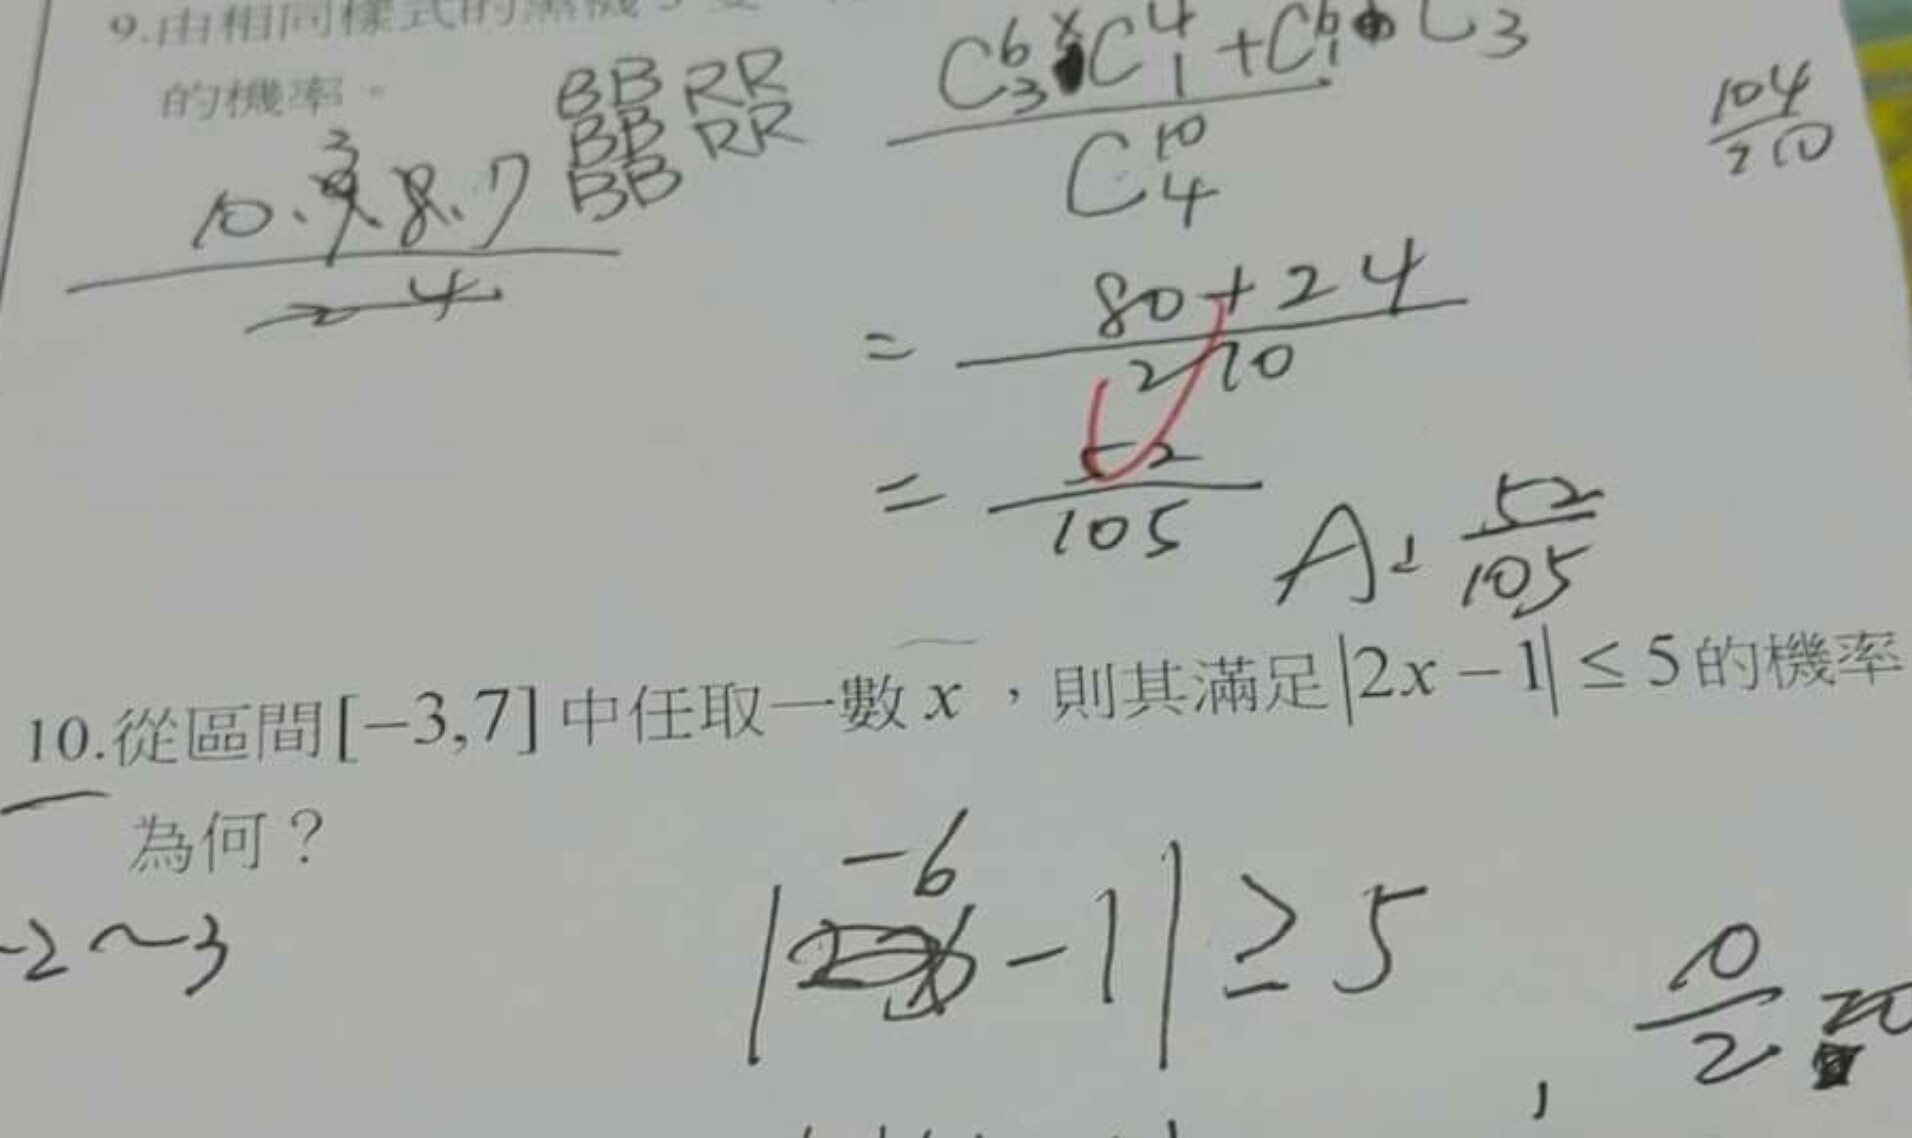 9.由相同樣式的黑襪
的機率。
BB RR
BB RR
BB
3
10.9.8.7
4
C⁶₃×C⁴₁+C⁶₁ C₃
C¹⁰₄
104
210
= 80+24
210
= 52
105
A: 52
105
10.從區間[−3,7]中任取一數x，則其滿足|2x−1|≤5的機率
為何？
-2～3
-6
| -1|≥5
10
2